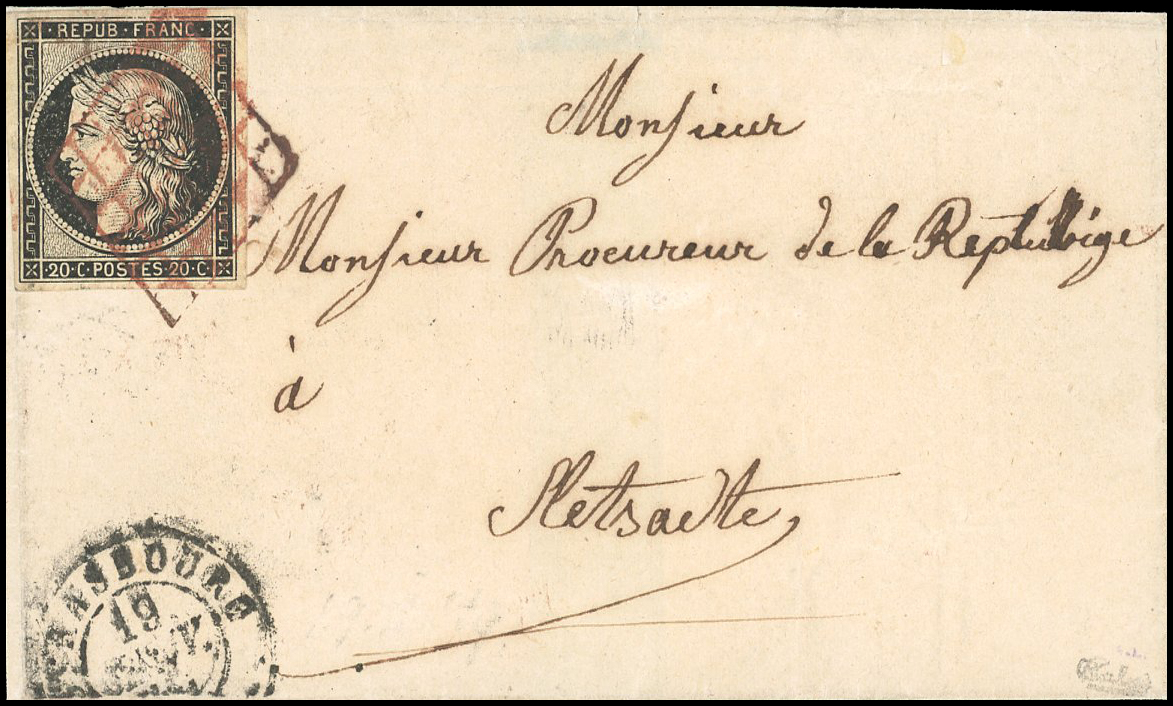 REPUB · FRANC ·
20 · C · POSTES · 20 · C
Monsieur
Monsieur Procureur de la Republige
à
Sletsadte,
STRASBOURG
19
JANV.